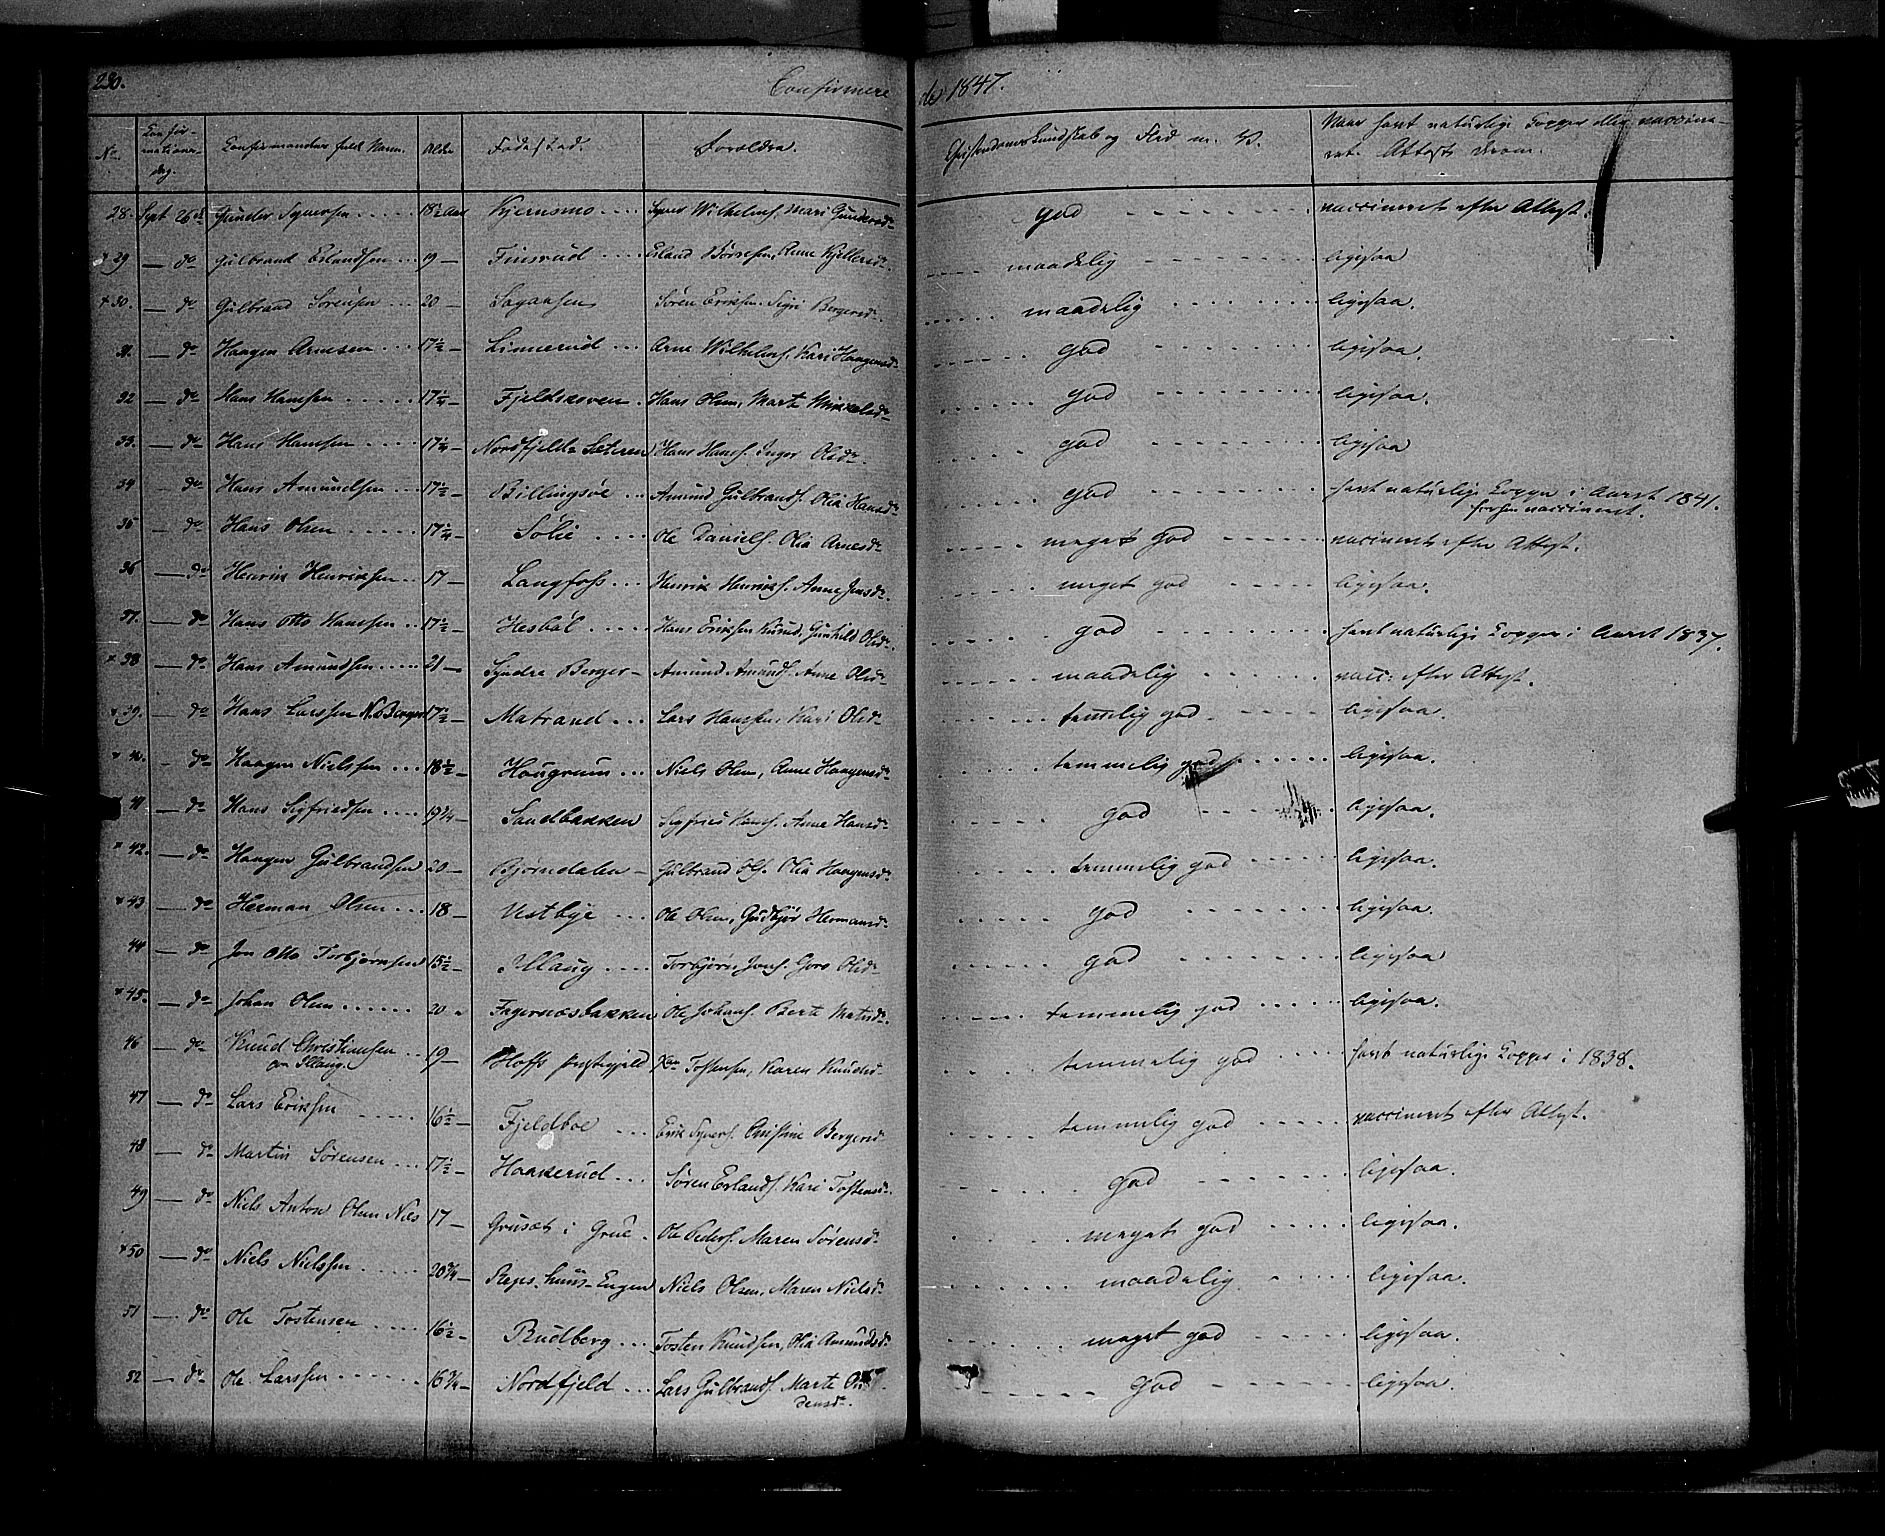 230. Confirmerede 1847.
No. Confirmationsdag. Confirmandens fulde Navn. Alder Födested. Forældre. Christendoms Kundskab og Flid m. V. Naar havt naturlige Copper eller vaccineret. Attest derom.
28. Sept 26de Gunder Syversen 18½ Aar Kjernsmo Syver Wilhelms. Mari Gundersdr god vaccineret efter Attest.
× 29 — do Gulbrand Erlandsen 19 — Finsrud Erland Børresen, Anne Kjellersdr maadelig ligesaa
× 30. — do Gulbrand Sørensen 20 — Sagausen Søren Eriksen. Sigri Bergersdr. maadelig ligesaa.
31. — do Haagen Arnesen 17½ — Linnerud Arne Wilhelms. Kari Haagensdr god ligesaa.
32 — do Hans Hansen 17¼ — Fjeldskoven Hans Olsen, Marte Mikkelsdr god ligesaa.
33. — do Hans Hansen 17¼ — Nordfjeld-Sæteren Hans Hans. Inger Olsdr. god ligesaa
34 — do Hans Amundsen 17½ — Billingsøe Amund Gulbrands. Olia Hansdr god havt naturlige Copper i Aaret 1841.
forhen vaccineret.
35 — do Hans Olsen 17¼ — Solie Ole Daniels. Olia Arnesdr meget god vaccineret efter Attest.
36 — do Henrik Henriksen 17 — Langfoss Henrik Henriks. Anne Jensdr. meget god ligesaa.
37. — do Hans Otto Hansen 17½ — Hesbøl Hans Eriksen Gunhild Olsdr. god havt naturlige Copper i Aaret 1837.
× 38 — do Hans Amundsen 21 — Syndre Berger — Amund Amunds. Anne Olsdr maadelig vacc: efter Attest.
× 39. — do Hans Larssen N. Berger 17½ — Matrand Lars Hansen, Kari Olsdr temmelig god ligesaa.
× 40. - do Haagen Nielssen 18½ — Haugrum Niels Olsen, Anne Haagensdr temmelig god ligesaa.
41 — do Hans Sigfriedsen 19¾ — Sandbakken Sigfried Hans. Anne Hansdr god ligesaa.
× 42. — do Haagen Gulbrandsen 20 — Bjørndalen — Gulbrand Ols. Olia Haagensdr. temmelig god ligesaa.
× 43 — do Herman Olsen 18 — Vestbye Ole Olsen, Gudbjør Hermansdr god ligesaa.
44 — do Jon Otto Torbjørnsen 15½ — Illaug Torbjørn Jons. Goro Olsdr god ligesaa
× 45. — do Johan Olsen 20 " Fagernæsbakken Ole Johans. Berte Matsdr. temmelig god ligesaa.
46 — do Knud Christiansen 19 — Hoffs Prestegjeld Tostensen, Karen Knudsdr temmelig god havt naturlige Copper i 1838.
paa Illaug.
47 — do Lars Eriksen 16½ — Fjeldboe Erik Syvers. Christine Bergersdr temmelig god vaccineret efter Attest.
48 — do Martin Sørensen 17½ — Haakerud Søren Erlands. Kari Tostensdr. god ligesaa.
49 — do Niels Anton Olsen Næs 17 — Grusæt i Grue. Ole Peders. Maren Sørensdr meget god ligesaa.
× 50 — do Niels Nielssen 20¾ — Engen Niels Olsen, Maren Nielsdr maadelig ligesaa.
51 — do Ole Tostensen 16½ — Rudberg Tosten Knudsen, Olia Amundsdr meget god ligesaa.
52 — do Ole Larssen 16¾ — Nordfjeld Lars Gulbrands. Marte god ligesaa.
densdr.